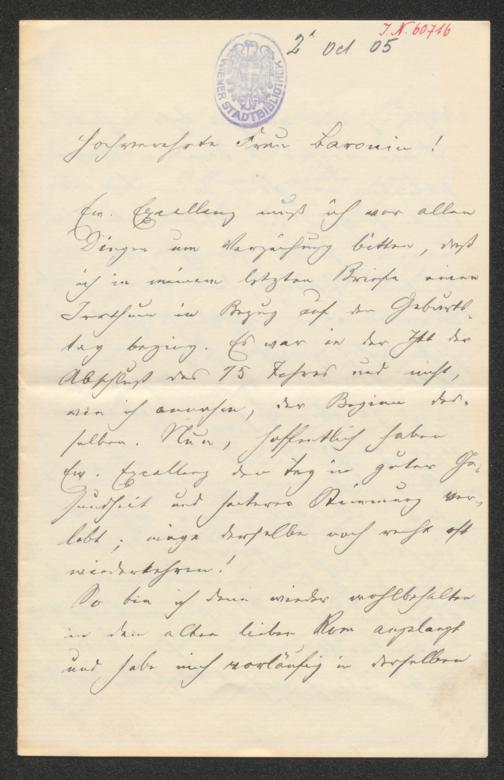 J.N. 60716
2ᵗ Oct. 05
WIENER STADTBIBLIOTHEK
Hochverehrte Frau Baronin!
Ew. Excellenz muß ich vor allen
Dingen um Verzeihung bitten, daß
ich in meinem letzten Briefe einen
Irrthum in Bezug auf den Geburts-
tag beging. Es war in der That der
Abschluß des 75 Jahres und nicht,
wie ich annahm, der Beginn des-
selben. Nun, hoffentlich haben
Ew. Excellenz den Tag in guter Ge-
sundheit und heiterer Stimmung ver-
lebt; möge derselbe noch recht oft
wiederkehren!
So bin ich denn wieder wohlbehalten
in dem alten lieben Rom angelangt
und habe mich vorläufig in derselben